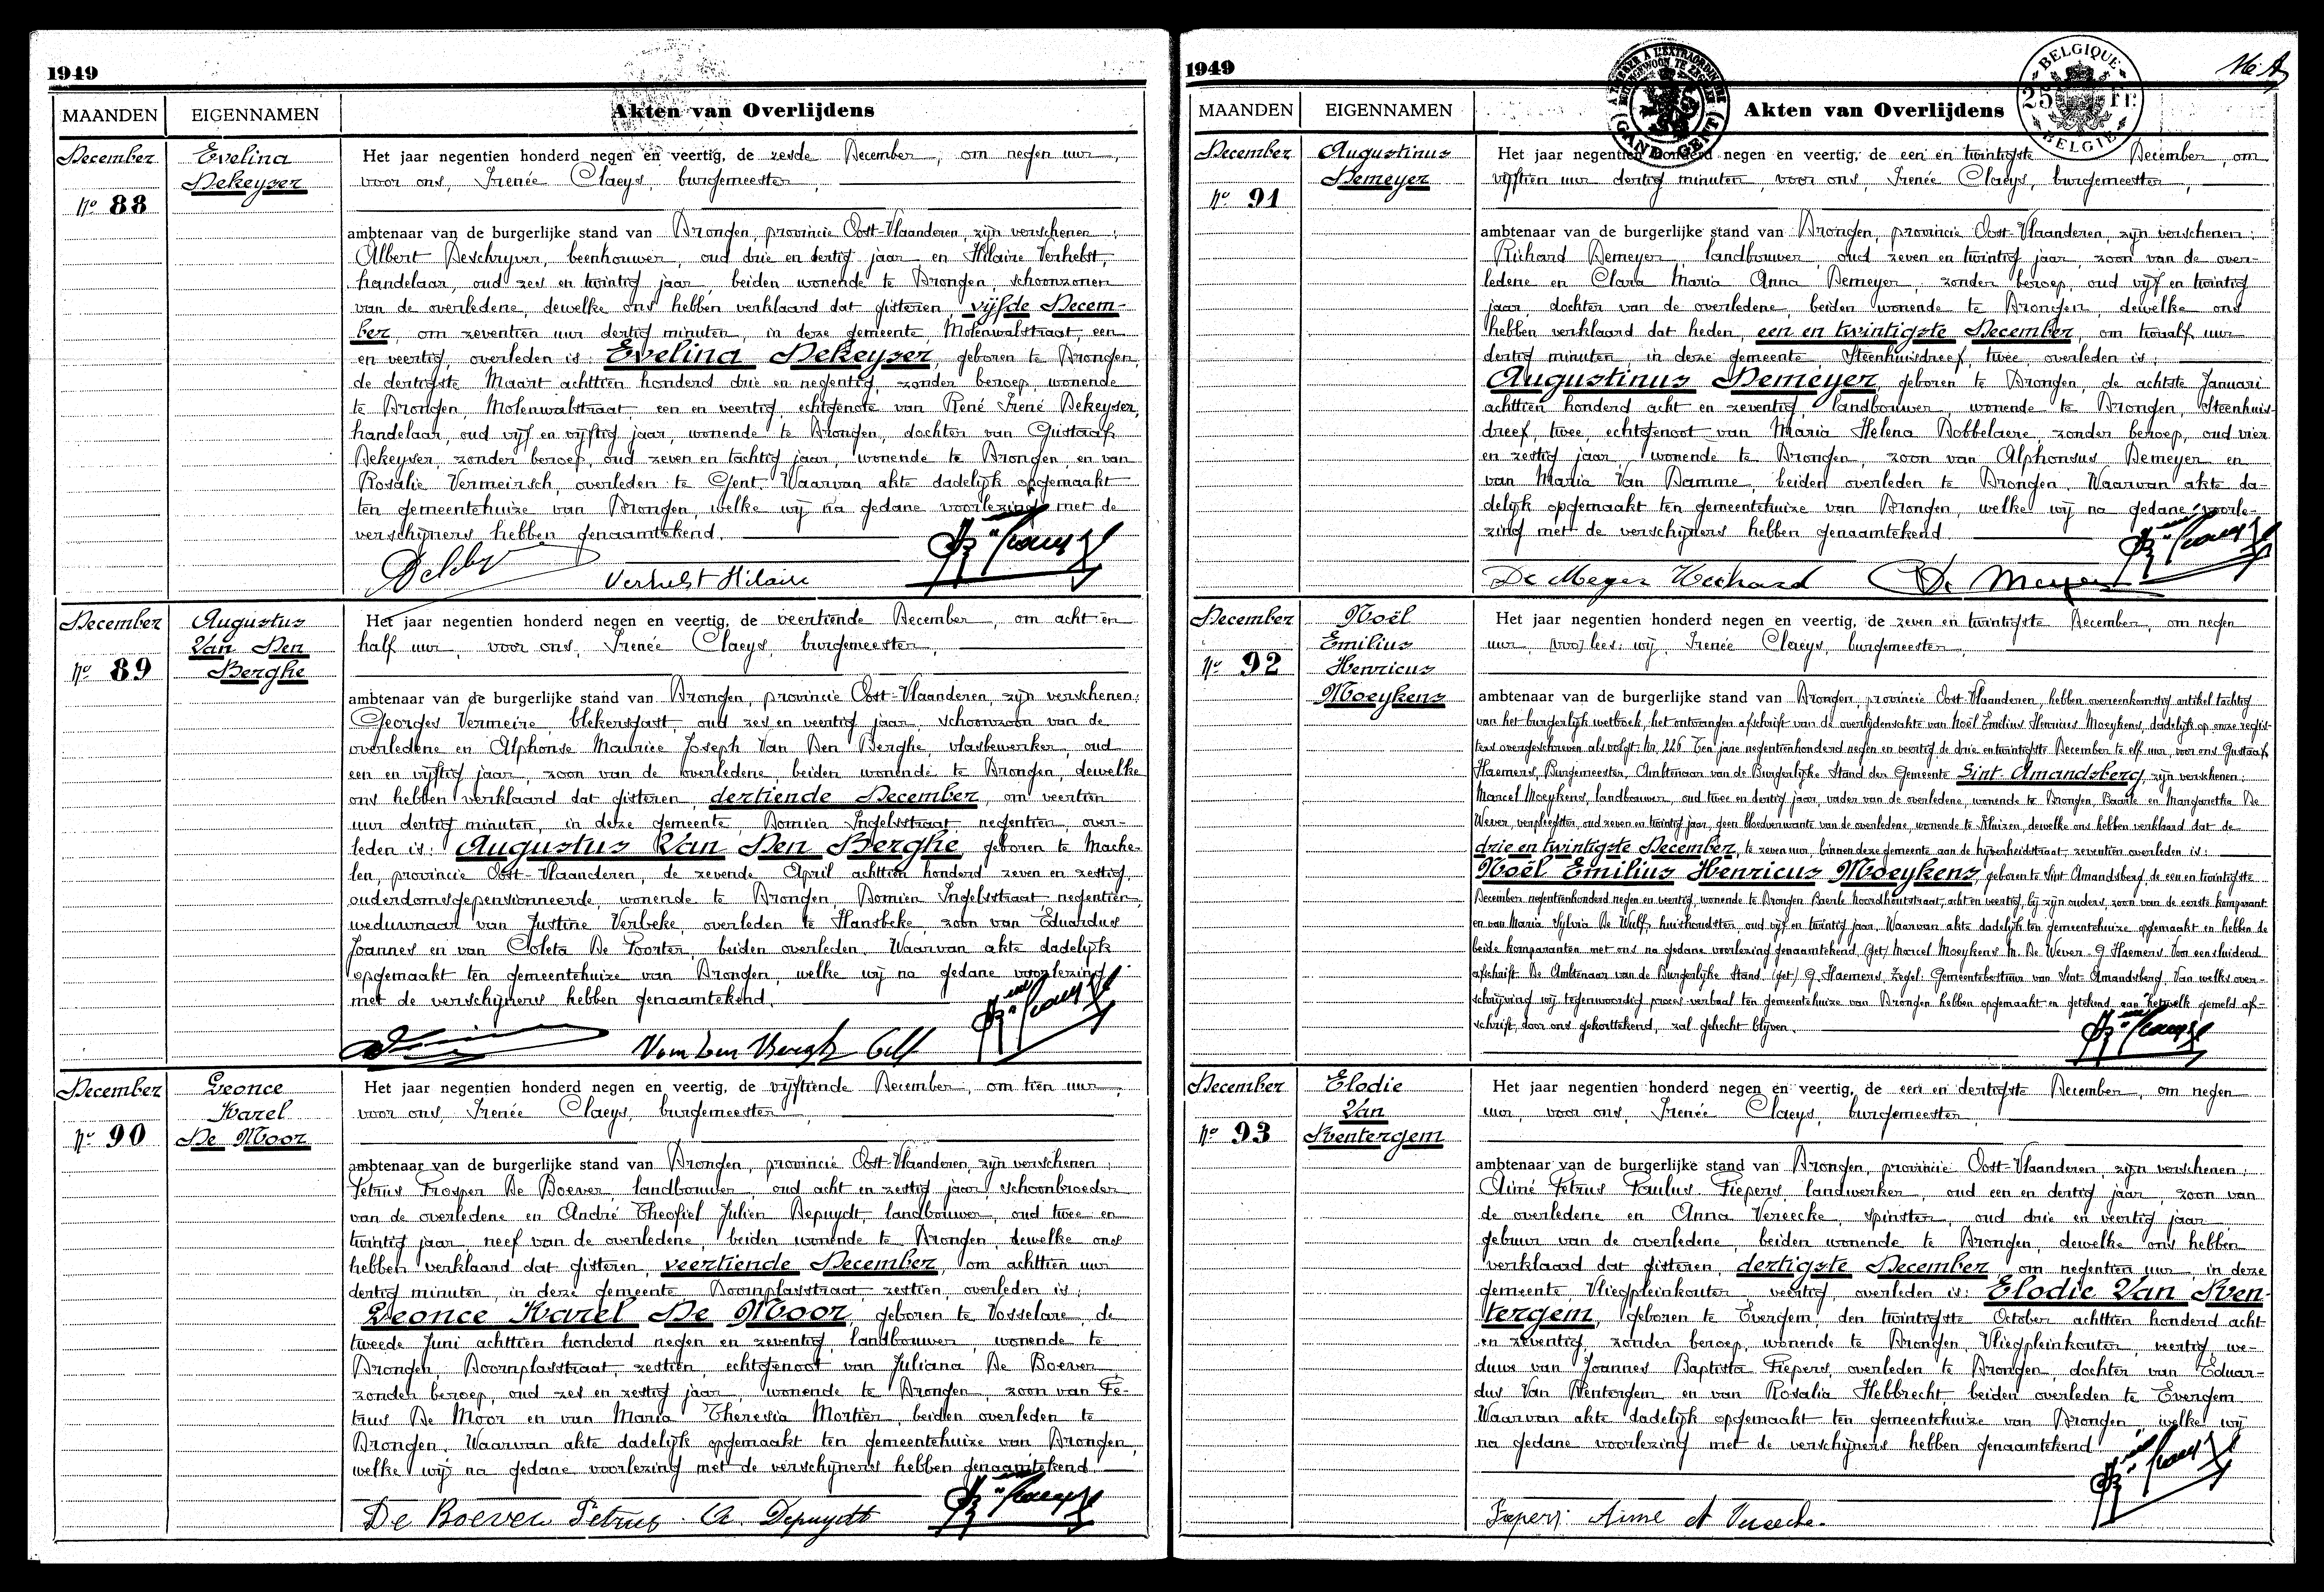 1949
MAANDEN EIGENNAMEN Akten van Overlijdens
December
Nº 88
Evelina
Dekeyser
Het jaar negentien honderd negen en veertig, de zesde December, om negen uur,
voor ons, Irenée Claeys, burgemeester,
ambtenaar van de burgerlijke stand van Drongen, provincie Oost-Vlaanderen, zijn verschenen:
Albert Deschryver, beenhouwer, oud drie en dertig jaar en Hilaire Verhelst,
handelaar, oud zes en twintig jaar, beiden wonende te Drongen, schoonzonen
van de overledene, dewelke ons hebben verklaard dat gisteren, vijfde Decem-
ber, om zeventien uur dertig minuten, in deze gemeente, Molenwalstraat een
en veertig, overleden is: Evelina Dekeyser, geboren te Drongen,
de dertigste Maart achttien honderd drie en negentig, zonder beroep, wonende
te Drongen, Molenwalstraat, een en veertig, echtgenote van René Irené Dekeyser,
handelaar, oud vijf en vijftig jaar, wonende te Drongen, dochter van Gustaaf
Dekeyser, zonder beroep, oud zeven en tachtig jaar, wonende te Drongen, en van
Rosalie Vermeirsch, overleden te Gent. Waarvan akte dadelijk opgemaakt
ten gemeentehuize van Drongen, welke wij na gedane voorlezing met de
verschijners hebben genaamtekend.
Verhelst Hilaire
December
Nº 89
Augustus
Van Den
Berghe
Het jaar negentien honderd negen en veertig, de veertiende December, om acht en
half uur, voor ons, Irenée Claeys, burgemeester,
ambtenaar van de burgerlijke stand van Drongen, provincie Oost-Vlaanderen, zijn verschenen:
Georges Vermeire, blekersgast, oud zes en veertig jaar, schoonzoon van de
overledene en Alphonse Maurice Joseph Van Den Berghe, vlasbewerker, oud
een en vijftig jaar, zoon van de overledene, beiden wonende te Drongen, dewelke
ons hebben verklaard dat gisteren, dertiende December, om veertien
uur dertig minuten, in deze gemeente, Domien Ingelsstraat, negentien, over-
leden is: Augustus Van Den Berghe, geboren te Mache-
len, provincie Oost-Vlaanderen, de zevende April achttien honderd zeven en zestig,
ouderdomsgepensionneerde, wonende te Drongen, Domien Ingelsstraat negentien,
weduwnaar van Justine Verbeke, overleden te Hansbeke, zoon van Eduardus
Joannes en van Coleta De Poorter, beiden overleden. Waarvan akte dadelijk
opgemaakt ten gemeentehuize van Drongen, welke wij na gedane voorlezing
met de verschijners hebben genaamtekend.
December
Nº 90
Leonce
Karel
De Moor
Het jaar negentien honderd negen en veertig, de vijftiende December, om tien uur,
voor ons, Irenée Claeys, burgemeester,
ambtenaar van de burgerlijke stand van Drongen, provincie Oost-Vlaanderen, zijn verschenen:
Petrus Prosper De Boever, landbouwer, oud acht en zestig jaar, schoonbroeder
van de overledene en André Theofiel Julien Depuydt, landbouwer, oud twee en
twintig jaar, neef van de overledene, beiden wonende te Drongen, dewelke ons
hebben verklaard dat gisteren, veertiende December, om achttien uur
dertig minuten, in deze gemeente Doornplasstraat, zestien, overleden is:
Leonce Karel De Moor, geboren te Vosselare, de
tweede Juni achttien honderd negen en zeventig, landbouwer, wonende te
Drongen, Doornplasstraat, zestien, echtgenoot van Juliana De Boever,
zonder beroep, oud zes en zestig jaar, wonende te Drongen, zoon van Pe-
trus De Moor en van Maria Theresia Mortier, beiden overleden te
Drongen. Waarvan akte dadelijk opgemaakt ten gemeentehuize van Drongen,
welke wij na gedane voorlezing met de verschijners hebben genaamtekend.
De Boever Petrus A. Depuydt
1949
BELGIQUE
25 Fr.
BELGIË
GAND GENT
MAANDEN EIGENNAMEN Akten van Overlijdens
December
Nº 91
Augustinus
Demeyer
Het jaar negentien honderd negen en veertig, de een en twintigste December, om
vijftien uur dertig minuten, voor ons, Irenée Claeys, burgemeester,
ambtenaar van de burgerlijke stand van Drongen, provincie Oost-Vlaanderen, zijn verschenen:
Richard Demeyer, landbouwer, oud zeven en twintig jaar, zoon van de over-
ledene en Clara Maria Anna Demeyer, zonder beroep, oud vijf en twintig
jaar, dochter van de overledene, beiden wonende te Drongen, dewelke ons
hebben verklaard dat heden, een en twintigste December, om twaalf uur
dertig minuten, in deze gemeente Steenhuisdreef, twee, overleden is:
Augustinus Demeyer, geboren te Drongen, de achtste Januari
achttien honderd acht en zeventig, landbouwer, wonende te Drongen, Steenhuis-
dreef, twee, echtgenoot van Maria Helena Dobbelaere, zonder beroep, oud vier
en zestig jaar, wonende te Drongen, zoon van Alphonsus Demeyer en
van Maria Van Damme, beiden overleden te Drongen. Waarvan akte da-
delijk opgemaakt ten gemeentehuize van Drongen, welke wij na gedane voorle-
zing met de verschijners hebben genaamtekend.
De Meyer Richard De Meyer
December
Nº 92
Noël
Emilius
Henricus
Moeykens
Het jaar negentien honderd negen en veertig, de zeven en twintigste December, om negen
uur, voor, lees: wij, Irenée Claeys, burgemeester,
ambtenaar van de burgerlijke stand van Drongen, provincie Oost-Vlaanderen, hebben overeenkomstig artikel tachtig
van het burgerlijk wetboek, het ontvangen afschrift van de overlijdensakte van Noël Emilius Henricus Moeykens, dadelijk op onze regis-
ters overgeschreven als volgt: Nr. 226. Ten jare negentienhonderd negen en veertig de drie en twintigste December te elf uur, voor ons Gustaaf
Haemers, Burgemeester, Ambtenaar van de Burgerlijke Stand der Gemeente Sint-Amandsberg, zijn verschenen:
Marcel Moeykens, landbouwer, oud twee en dertig jaar, vader van de overledene, wonende te Drongen, Baarle en Margaretha De
Wever, verpleegster, oud zeven en twintig jaar, geen bloedverwante van de overledene, wonende te Kluizen, dewelke ons hebben verklaard dat de
drie en twintigste December, te zeven uur, binnen deze gemeente aan de hijverheidstraat, zeventien overleden is:
Noël Emilius Henricus Moeykens, geboren te Sint Amandsberg, de een en twintigste
December negentienhonderd negen en veertig, wonende te Drongen Baerle Noordhoutstraat, acht en veertig, bij zijn ouders, zoon van de eerste komparant
en van Maria Sylvia De Wulf, huishoudster, oud vijf en twintig jaar. Waarvan akte dadelijk ten gemeentehuize opgemaakt en hebben de
beide komparanten met ons na gedane voorlezing genaamtekend. (Get) Marcel Moeykens M. De Wever. G Haemers Voor eensluidend
afschrift De Ambtenaar van de Burgerlijke Stand (get) G. Haemers, Zegel: Gemeentebestuur van Sint Amandsberg. Van welks over-
schrijving wij tegenwoordig proces verbaal ten gemeentehuize van Drongen hebben opgemaakt en getekend aan hetwelk gemeld af-
schrift, door ons gekorttekend, zal gehecht blijven.
December
Nº 93
Elodie
Van
Kentergem
Het jaar negentien honderd negen en veertig, de een en dertigste December, om negen
uur, voor ons, Irenée Claeys, burgemeester,
ambtenaar van de burgerlijke stand van Drongen, provincie Oost-Vlaanderen, zijn verschenen:
Aimé Petrus Paulus Piepers, landwerker, oud een en dertig jaar, zoon van
de overledene en Anna Vereecke, spinster, oud drie en veertig jaar,
gebuur van de overledene, beiden wonende te Drongen, dewelke ons hebben
verklaard dat gisteren, dertigste December, om negentien uur, in deze
gemeente, Vliegpleinkouter, veertig, overleden is: Elodie Van Ken-
tergem, geboren te Evergem, den twintigste October achttien honderd acht
en zeventig, zonder beroep, wonende te Drongen, Vliegpleinkouter, veertig, we-
duwe van Joannes Baptista Piepers, overleden te Drongen, dochter van Eduar-
dus Van Kentergem en van Rosalia Hebbrecht, beiden overleden te Evergem.
Waarvan akte dadelijk opgemaakt ten gemeentehuize van Drongen, welke wij
na gedane voorlezing met de verschijners hebben genaamtekend.
Piepers Aimé A Vereecke